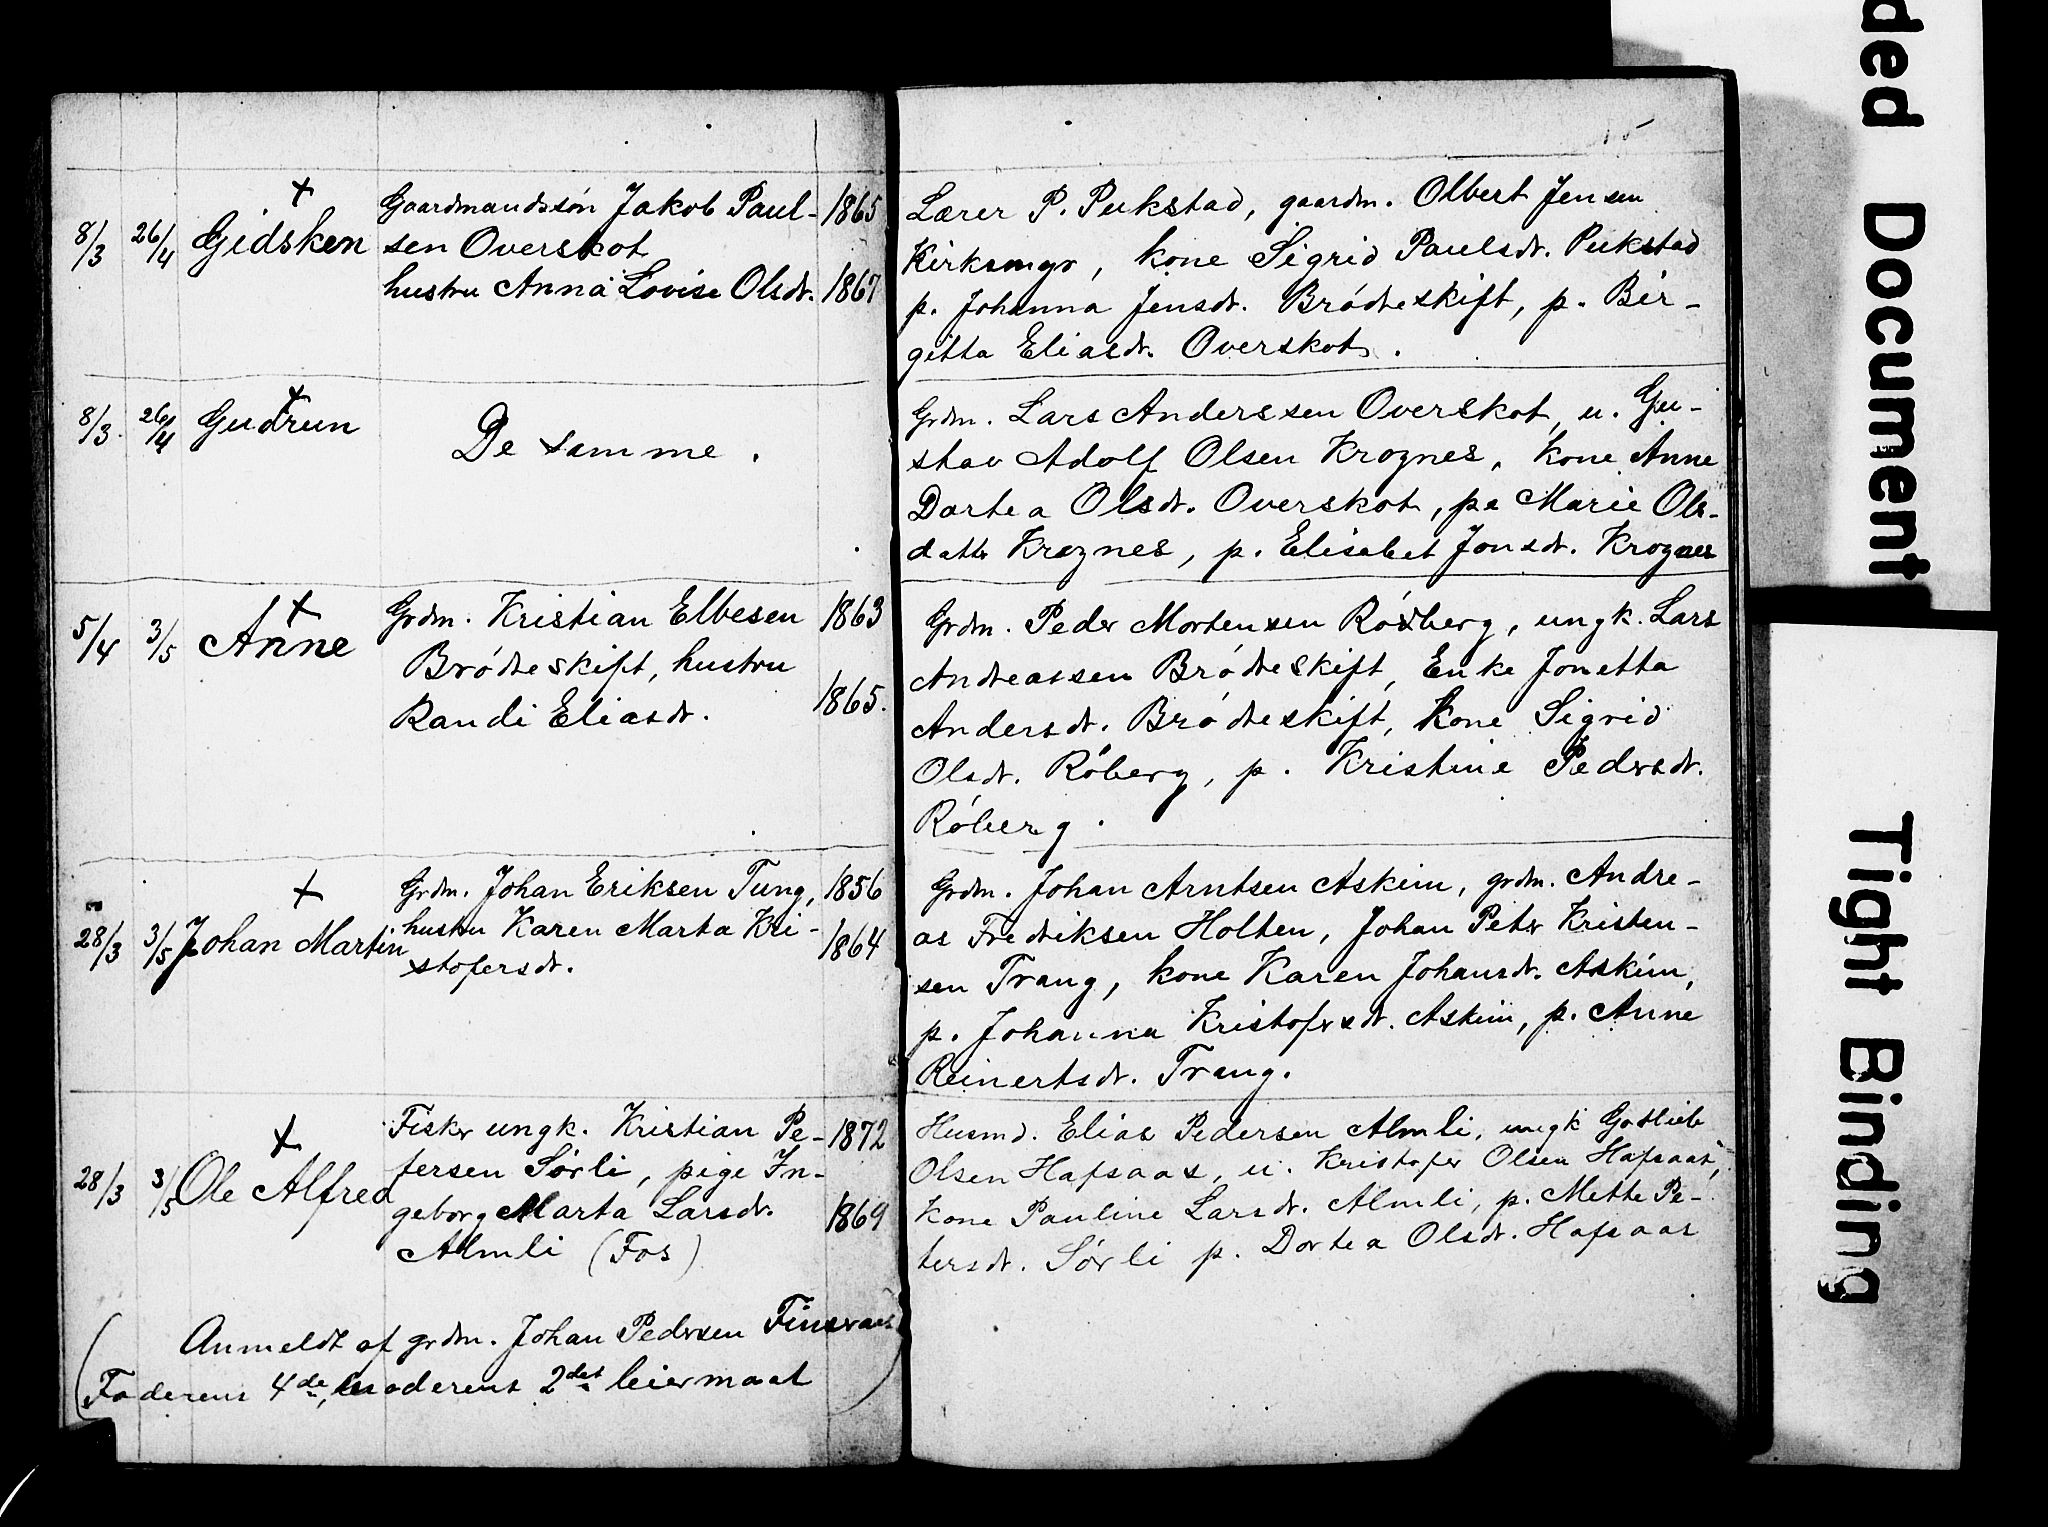 8/3 26/4 Gidsken +
Gaardmandssön Jakob Paul- 1865
sen Overskot
hustru Anna Lovise Olsdr. 1867
Lærer P. Pukstad, gaardm. Olbert Jensen
Kirksmyr, kone Sigrid Paulsdr. Pukstad
p. Johanna Jensdr. Brödreskift, p. Bir-
gitta Eliasdr. Overskot.
8/3. 26/4 Gudrun +
De samme.
Grdm. Lars Anderssen Overskot, u. Gu-
stav Adolf Olsen Krognes, kone Anne
Dortea Olsdr. Overskot, pe Marie Ols-
datr Krognes, p. Elisabet Jonsdr. Krognes
5/4 3/5 Anne +
Grdm. Kristian Elbesen 1863
Brödreskift, hustru
Randi Eliasdr. 1865.
Grdm. Peder Mortensen Röxberg, ungk. Lars
Andreassen Brödreskift, Enke Jonetta
Andersdr. Brödreskift, kone Sigrid
Olsdr. Röberg, p. Kristine Pedersdr.
Röberg.
28/3 3/5 Johan Martin +
Grdm. Johan Eriksen Tung, 1856
hustru Karen Marta Kri- 1864
stofersdr.
Grdm. Johan Arntsen Askim, grdm. Andre-
as Fredriksen Holten, Johan Petr Kristen-
sen Trang, kone Karen Johansdr. Askim,
p. Johanna Kristofersdr. Askim, p. Anne
Reinertsdr. Trang.
28/3 3/5 Ole Alfred +
Fiskr ungk. Kristian Pe- 1872
tersen Sörli, pige In-
geborg Marta Larsdr. 1869
Almli (Fos)
Husmd. Elias Pedersen Almli, ungk Gotlieb
Olsen Hafsaas, u. Kristofer Olsen Hafsaas,
Kone Pauline Larsdr. Almli, p. Mette Pe-
tersdr. Sörli p. Dortea Olsdr. Hafsaas
(Anmeldt af grdm. Johan Pedersen
Faderens 4de, moderens 2det leiermaal)
ded Document
Tight Binding